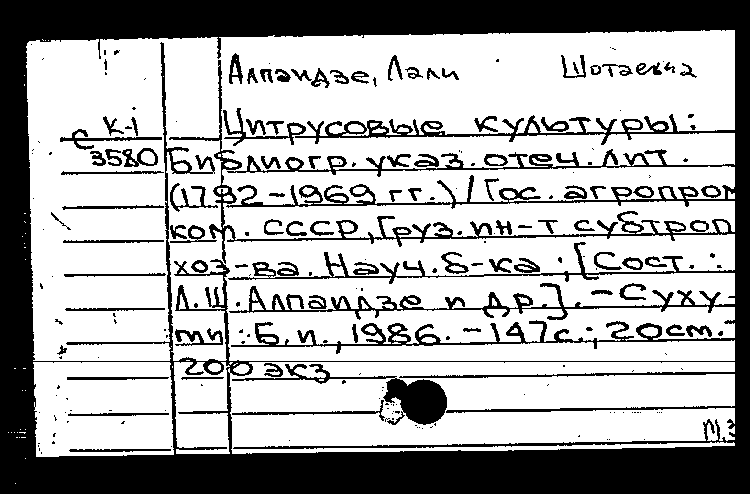 Алпаидзе, Лали Шотаевна
К-1 Цитрусовые культуры:
с 3580 Библиогр. указ. отеч. лит.
(1792-1969 гг.) / Гос. агропром
ком. СССР, Груз. ин-т субтроп
хоз-ва. Науч. б-ка ; [Сост. :
Л.Ш. Алпаидзе и др.]. - Суху-
ми : Б.и., 1986. - 147с. ; 20см. -
200 экз.